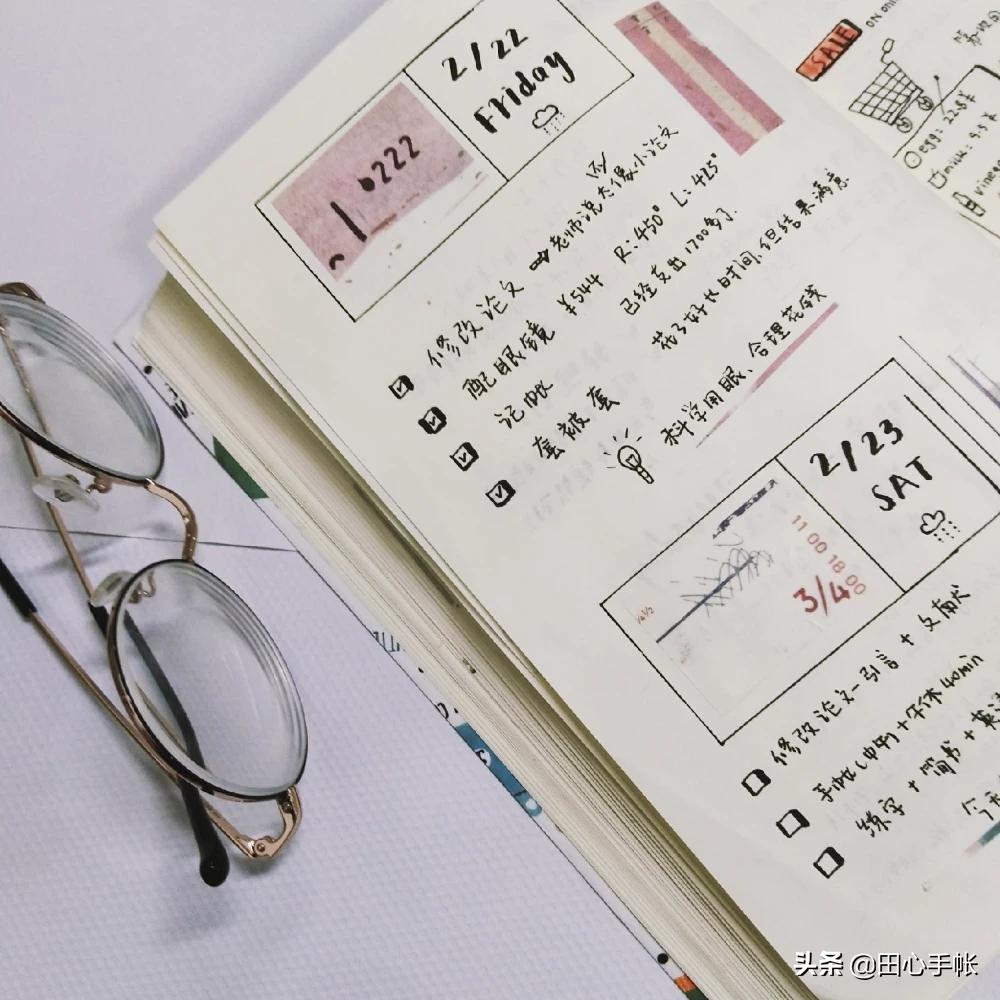 2/22
Friday
0222
修改论文 → 老师说太像小论文
配眼镜 ¥544 R:450° L:425°
记帐 已经支出1700多了
套被套 花了好长时间,但结果满意
科学用眼、合理花钱
2/23
SAT
11 00 18 00
3/4
修改论文-引言+文献
手帐(中午)+午休40min
练字+简书+英
SALE
egg: 22.8
milk: 9.9
vine
头条 @田心手帐